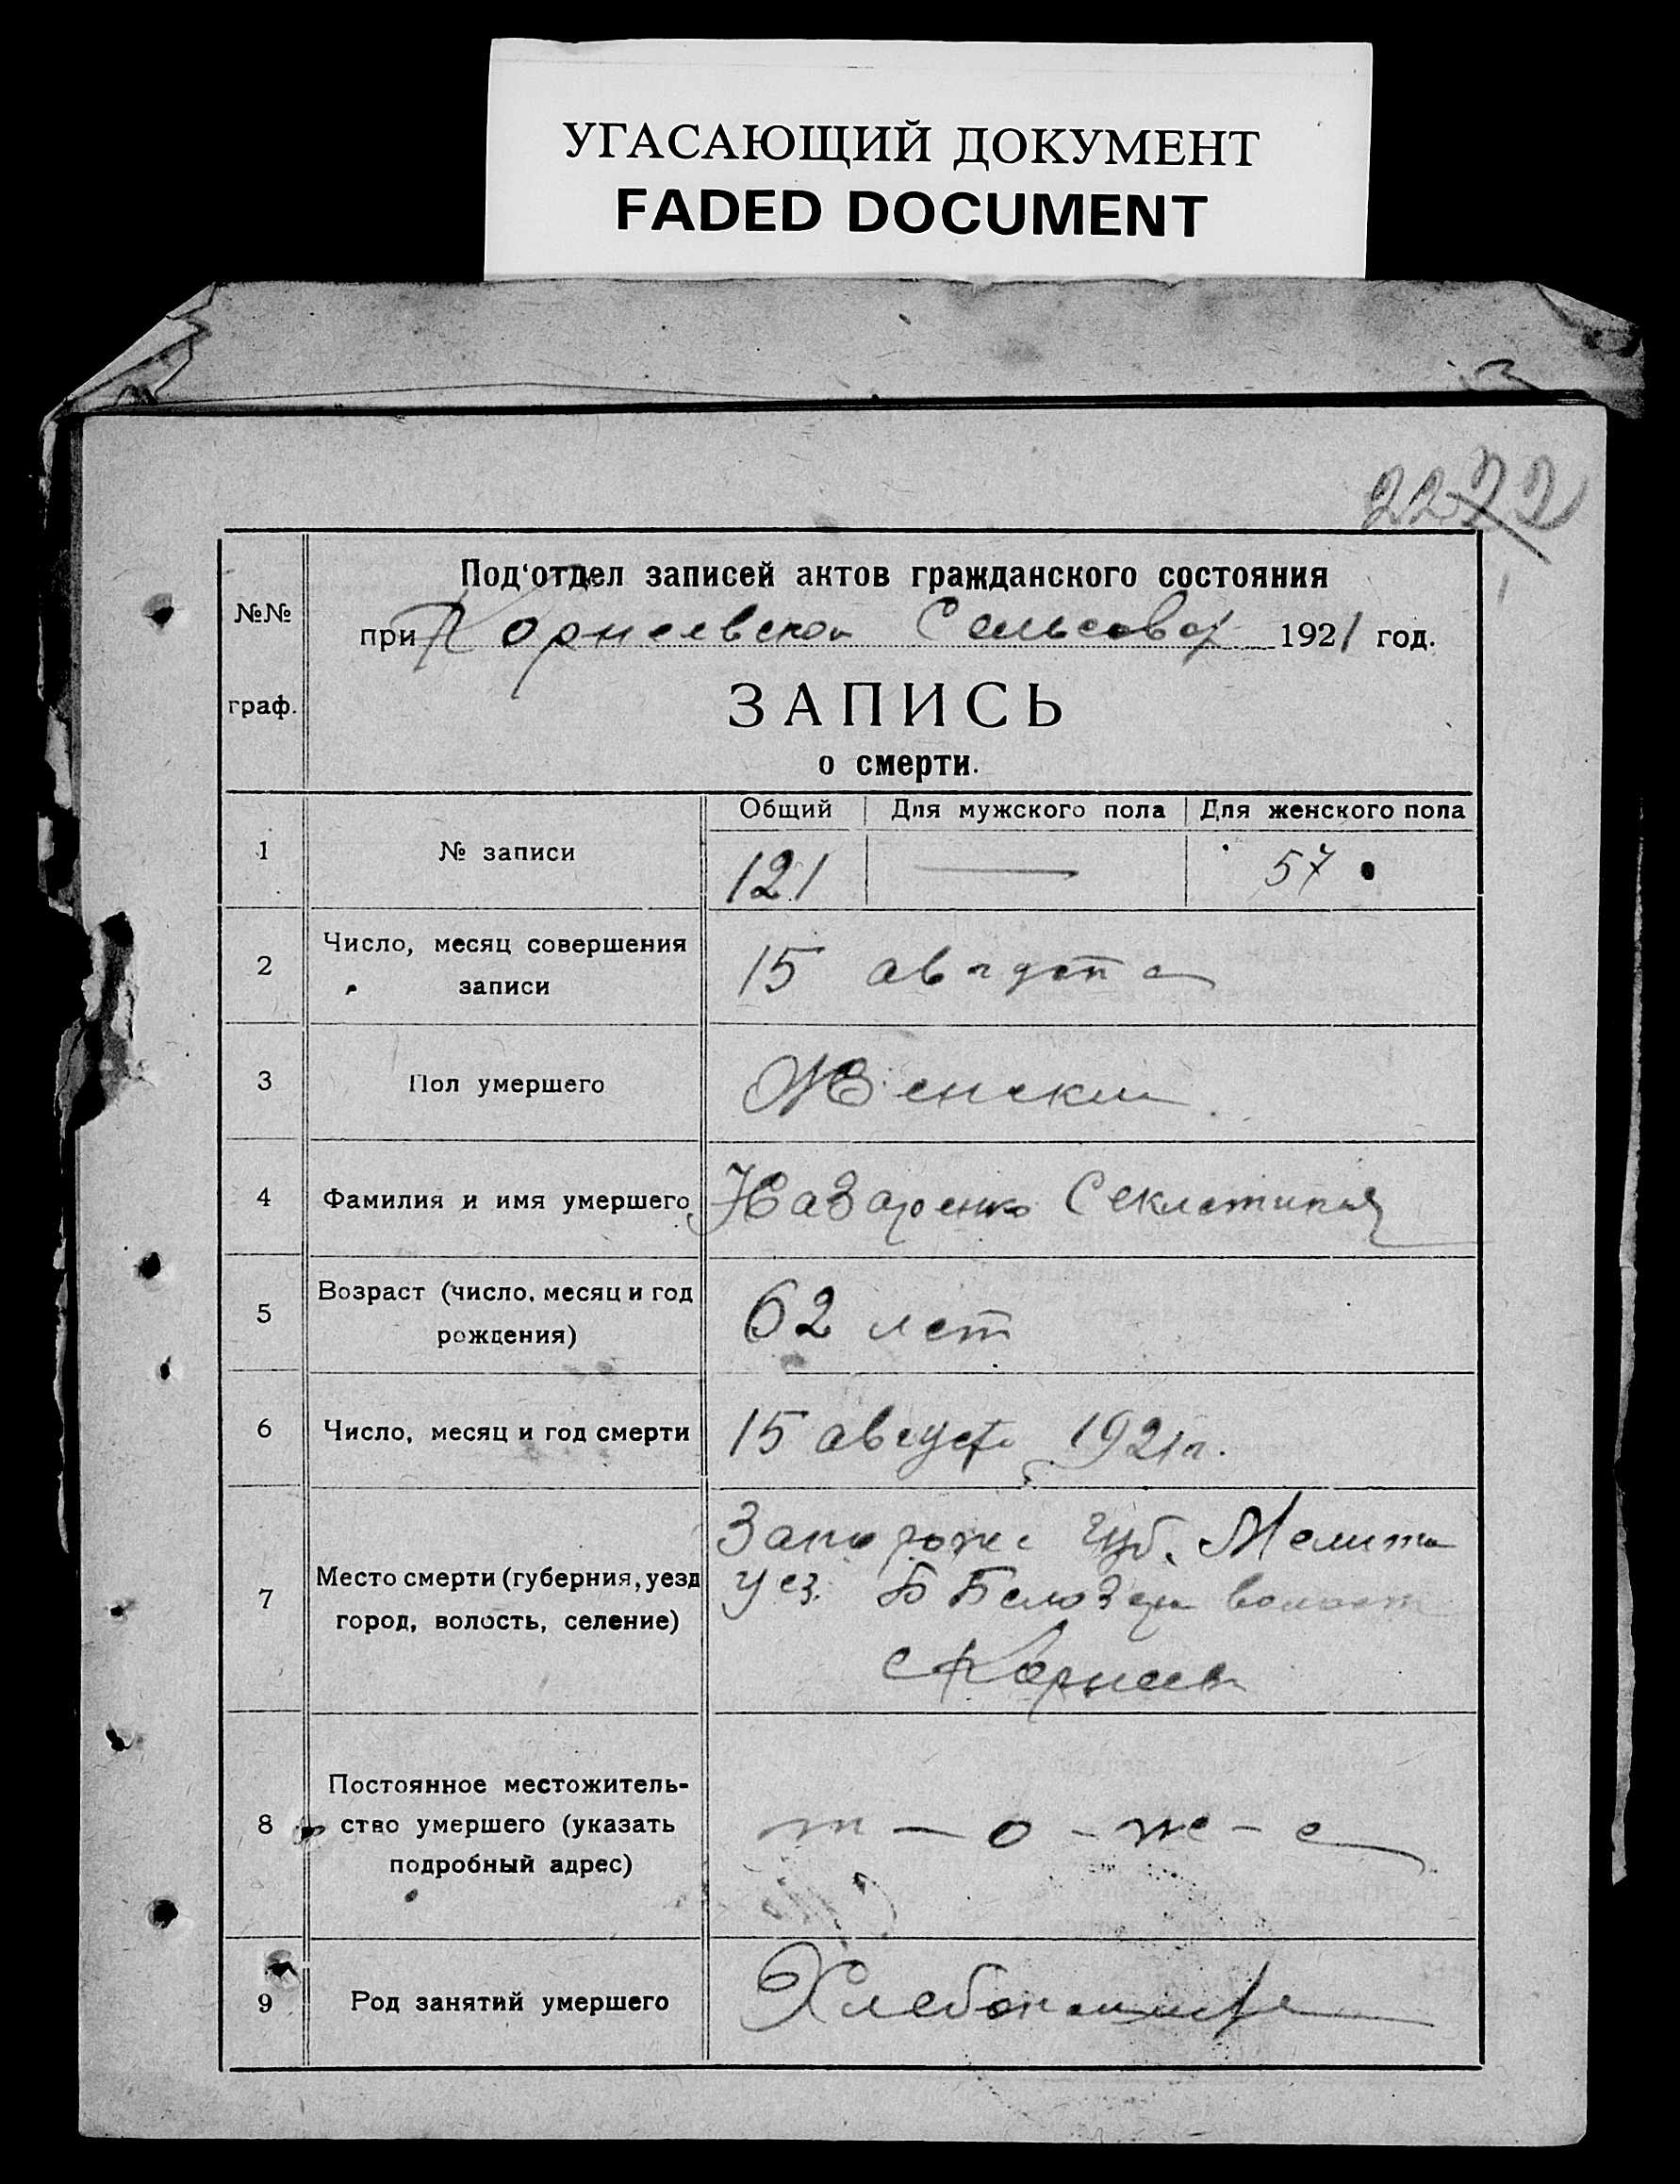 УГАСАЮЩИЙ ДОКУМЕНТ
FADED DOCUMENT
2272
Под‘отдел записей актов гражданского состояния
№№
при Корнеевском Сельсовет 1921 год.
граф.
ЗАПИСЬ
о смерти.
Общий Для мужского пола Для женского пола
1 № записи 121 — 57
2 Число, месяц совершения записи 15 августа
3 Пол умершего Женски
4 Фамилия и имя умершего Назаренко Секлетинья
5 Возраст (число, месяц и год рождения) 62 лет
6 Число, месяц и год смерти 15 августа 1921 г.
7 Место смерти (губерния, уезд город, волость, селение)
Запорожс губ. Мелито
уез. Б Белозер волост
с Корнеев
8 Постоянное местожитель-
ство умершего (указать
подробный адрес)
т — о - ж - е
9 Род занятий умершего Хлебопашество